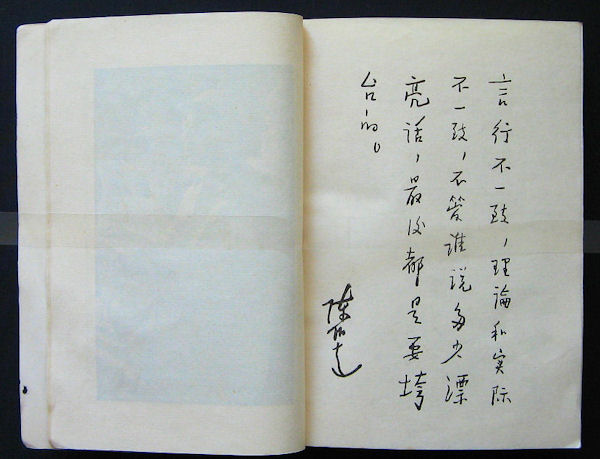 言行不一致，理論和实际
不一致，不管谁说多少漂
亮话，最后都是要垮
台的。
陈伯达